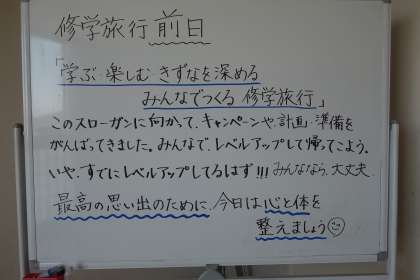 修学旅行前日
「学ぶ・楽しむ きずなを深める
みんなでつくる 修学旅行」
このスローガンに向かって、キャンペーンや、計画・準備を
がんばってきました。みんなで、レベルアップして帰ってこよう。
いや、すでにレベルアップしてるはず!!! みんななら、大丈夫。
最高の思い出のために、今日は心と体を
整えましょう